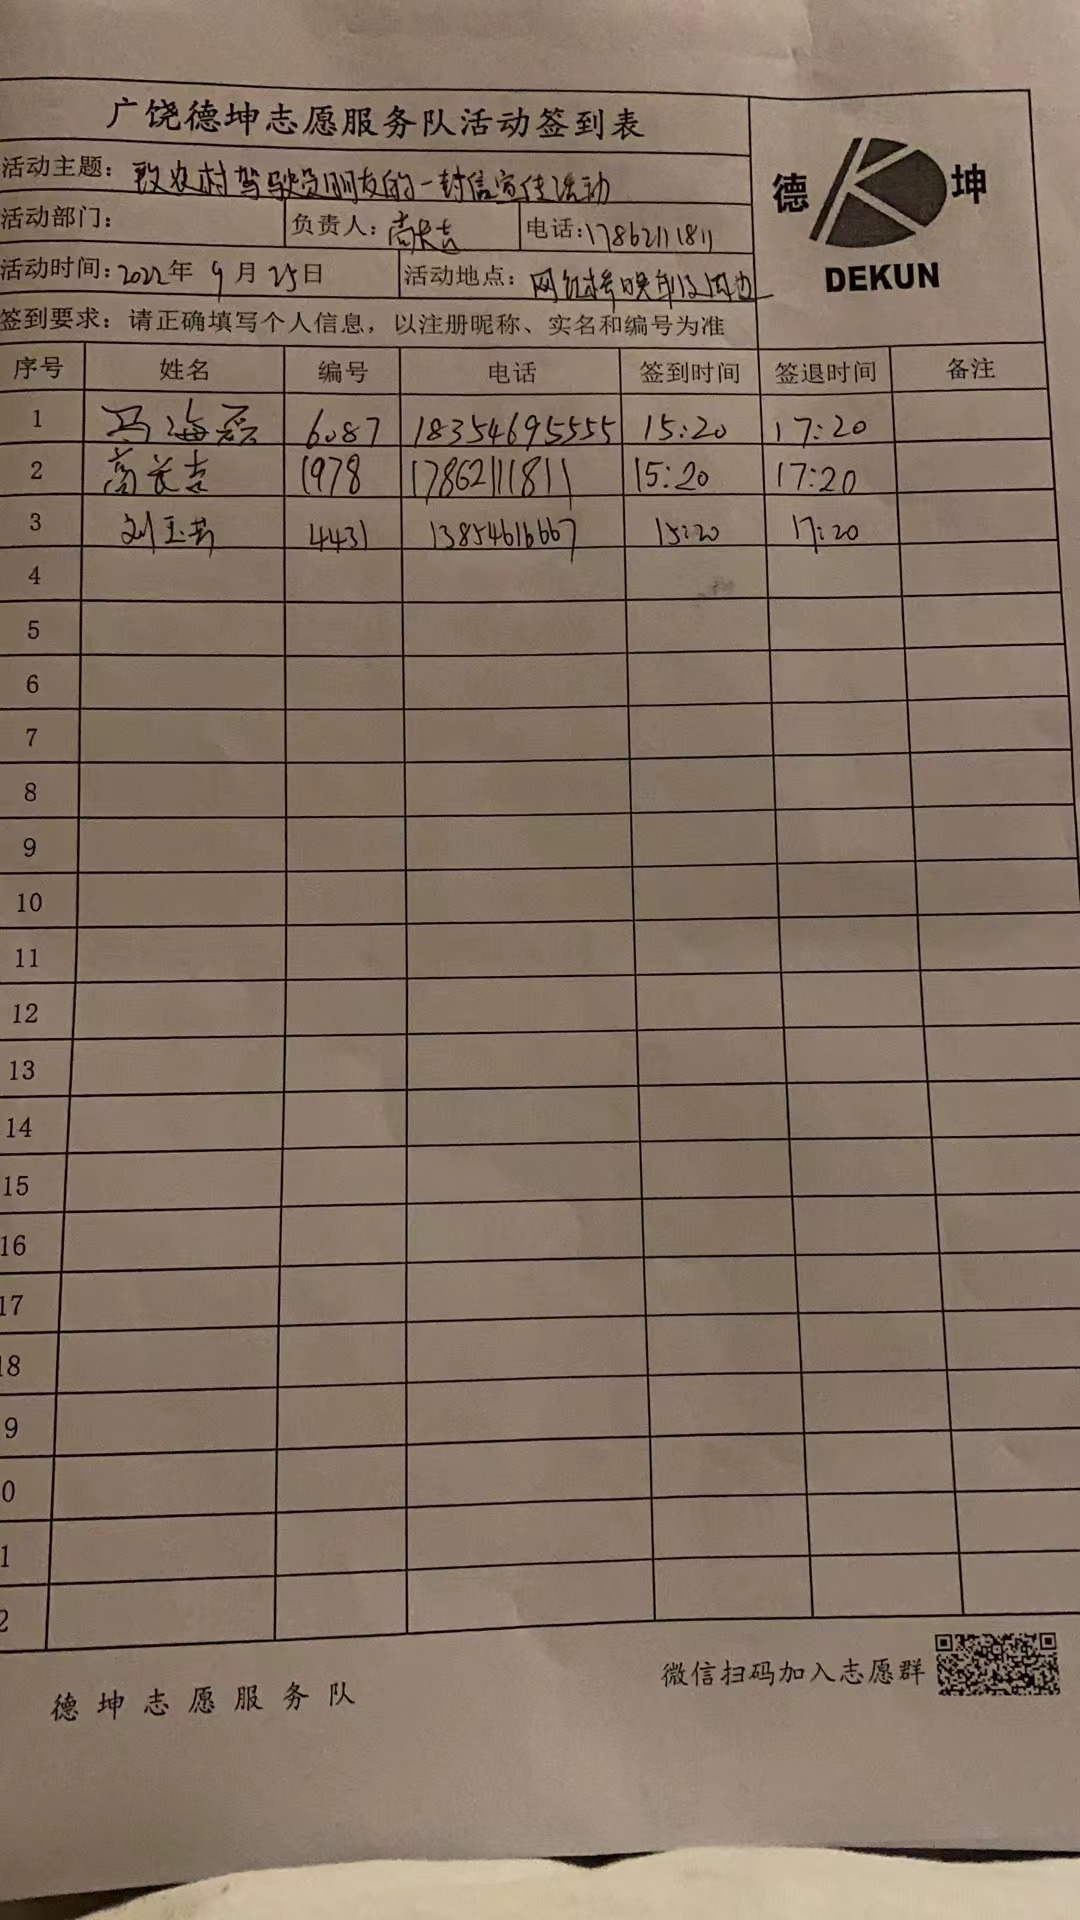 广饶德坤志愿服务队活动签到表
德 坤
DEKUN
活动主题：致农村驾驶员朋友的一封信宣传活动
活动部门： 负责人：高长吉 电话:17862111811
活动时间：2022年 9 月 25日 活动地点：网红桥 及周边
签到要求：请正确填写个人信息，以注册昵称、实名和编号为准
序号 姓名 编号 电话 签到时间 签退时间 备注
1 冯海 6087 18354695555 15:20 17:20
2 高长吉 1978 17862111811 15:20 17:20
3 刘玉 4431 13854616667 15:20 17:20
4
5
6
7
8
9
10
11
12
13
14
15
16
17
18
9
0
1
2
德坤志愿服务队
微信扫码加入志愿群